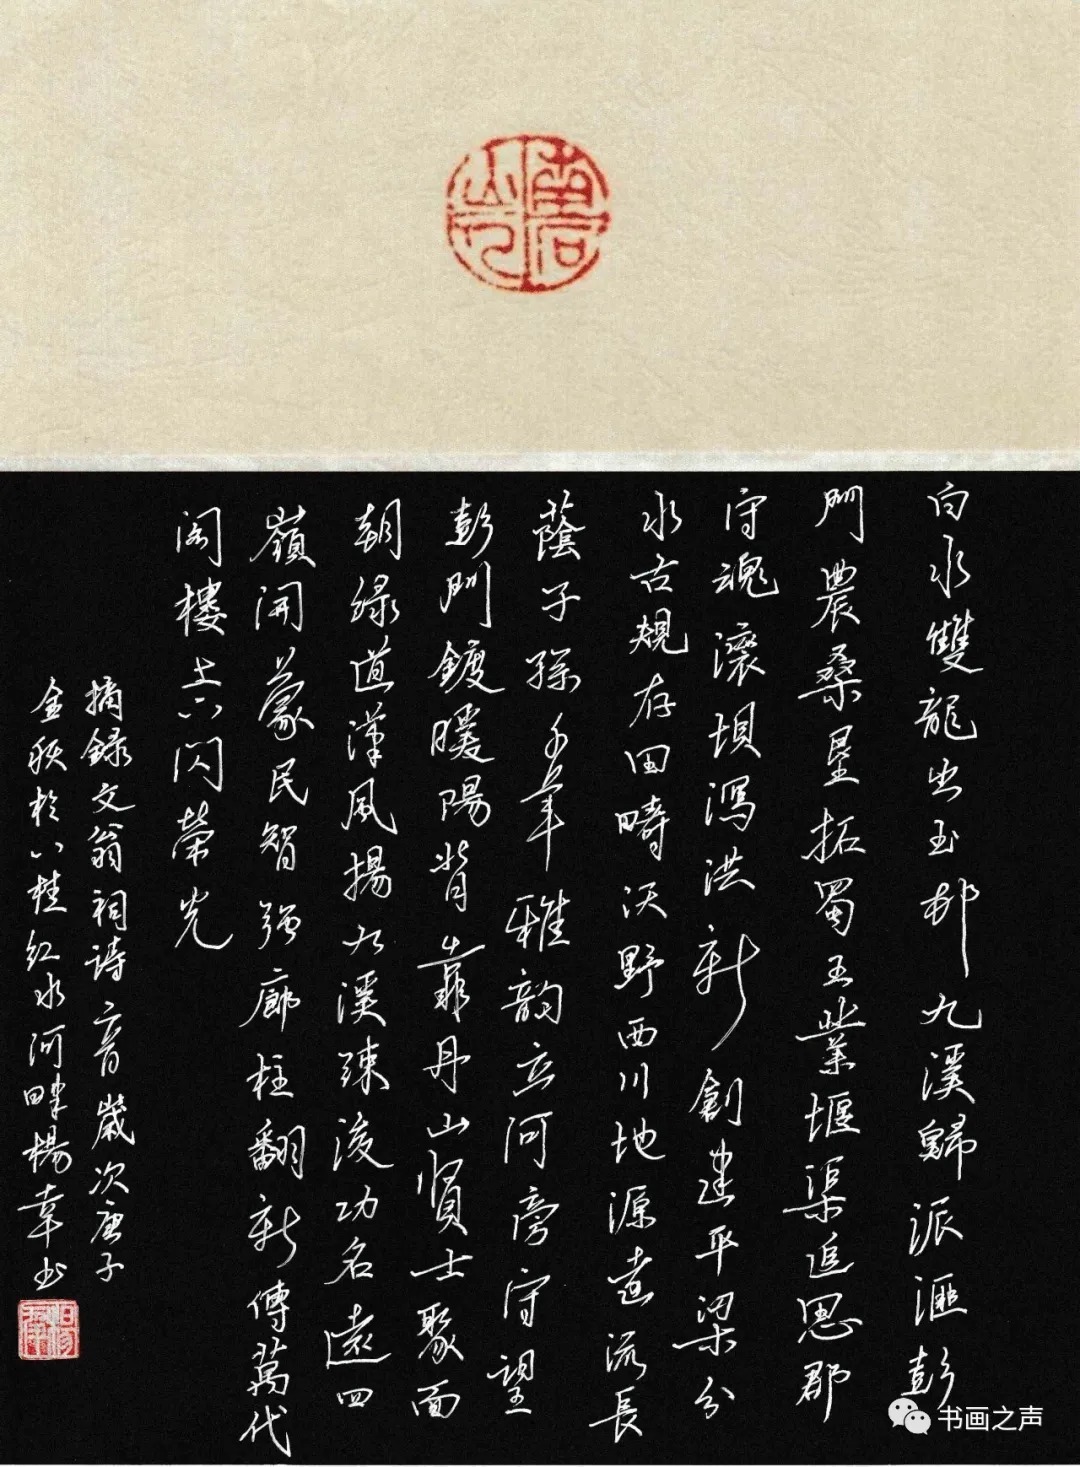 白水雙龍出玉邨九溪歸派滙彭
門農桑墾拓蜀王業堰渠追思郡
守魂滚坝瀉洪新創建平梁分
水古規存田疇沃野西川地源遠流長
蔭子孫千年雅韵立河旁守望
彭門鍍暖陽背靠丹山賢士聚面
朝緑道漢風揚九溪疎浚功名遠四
嶺開蒙民智强廊柱翻新傳萬代
阁樓上下閃榮光
摘録文翁祠诗二首歲次庚子
金秋於八桂红水河畔楊幸书
书画之声